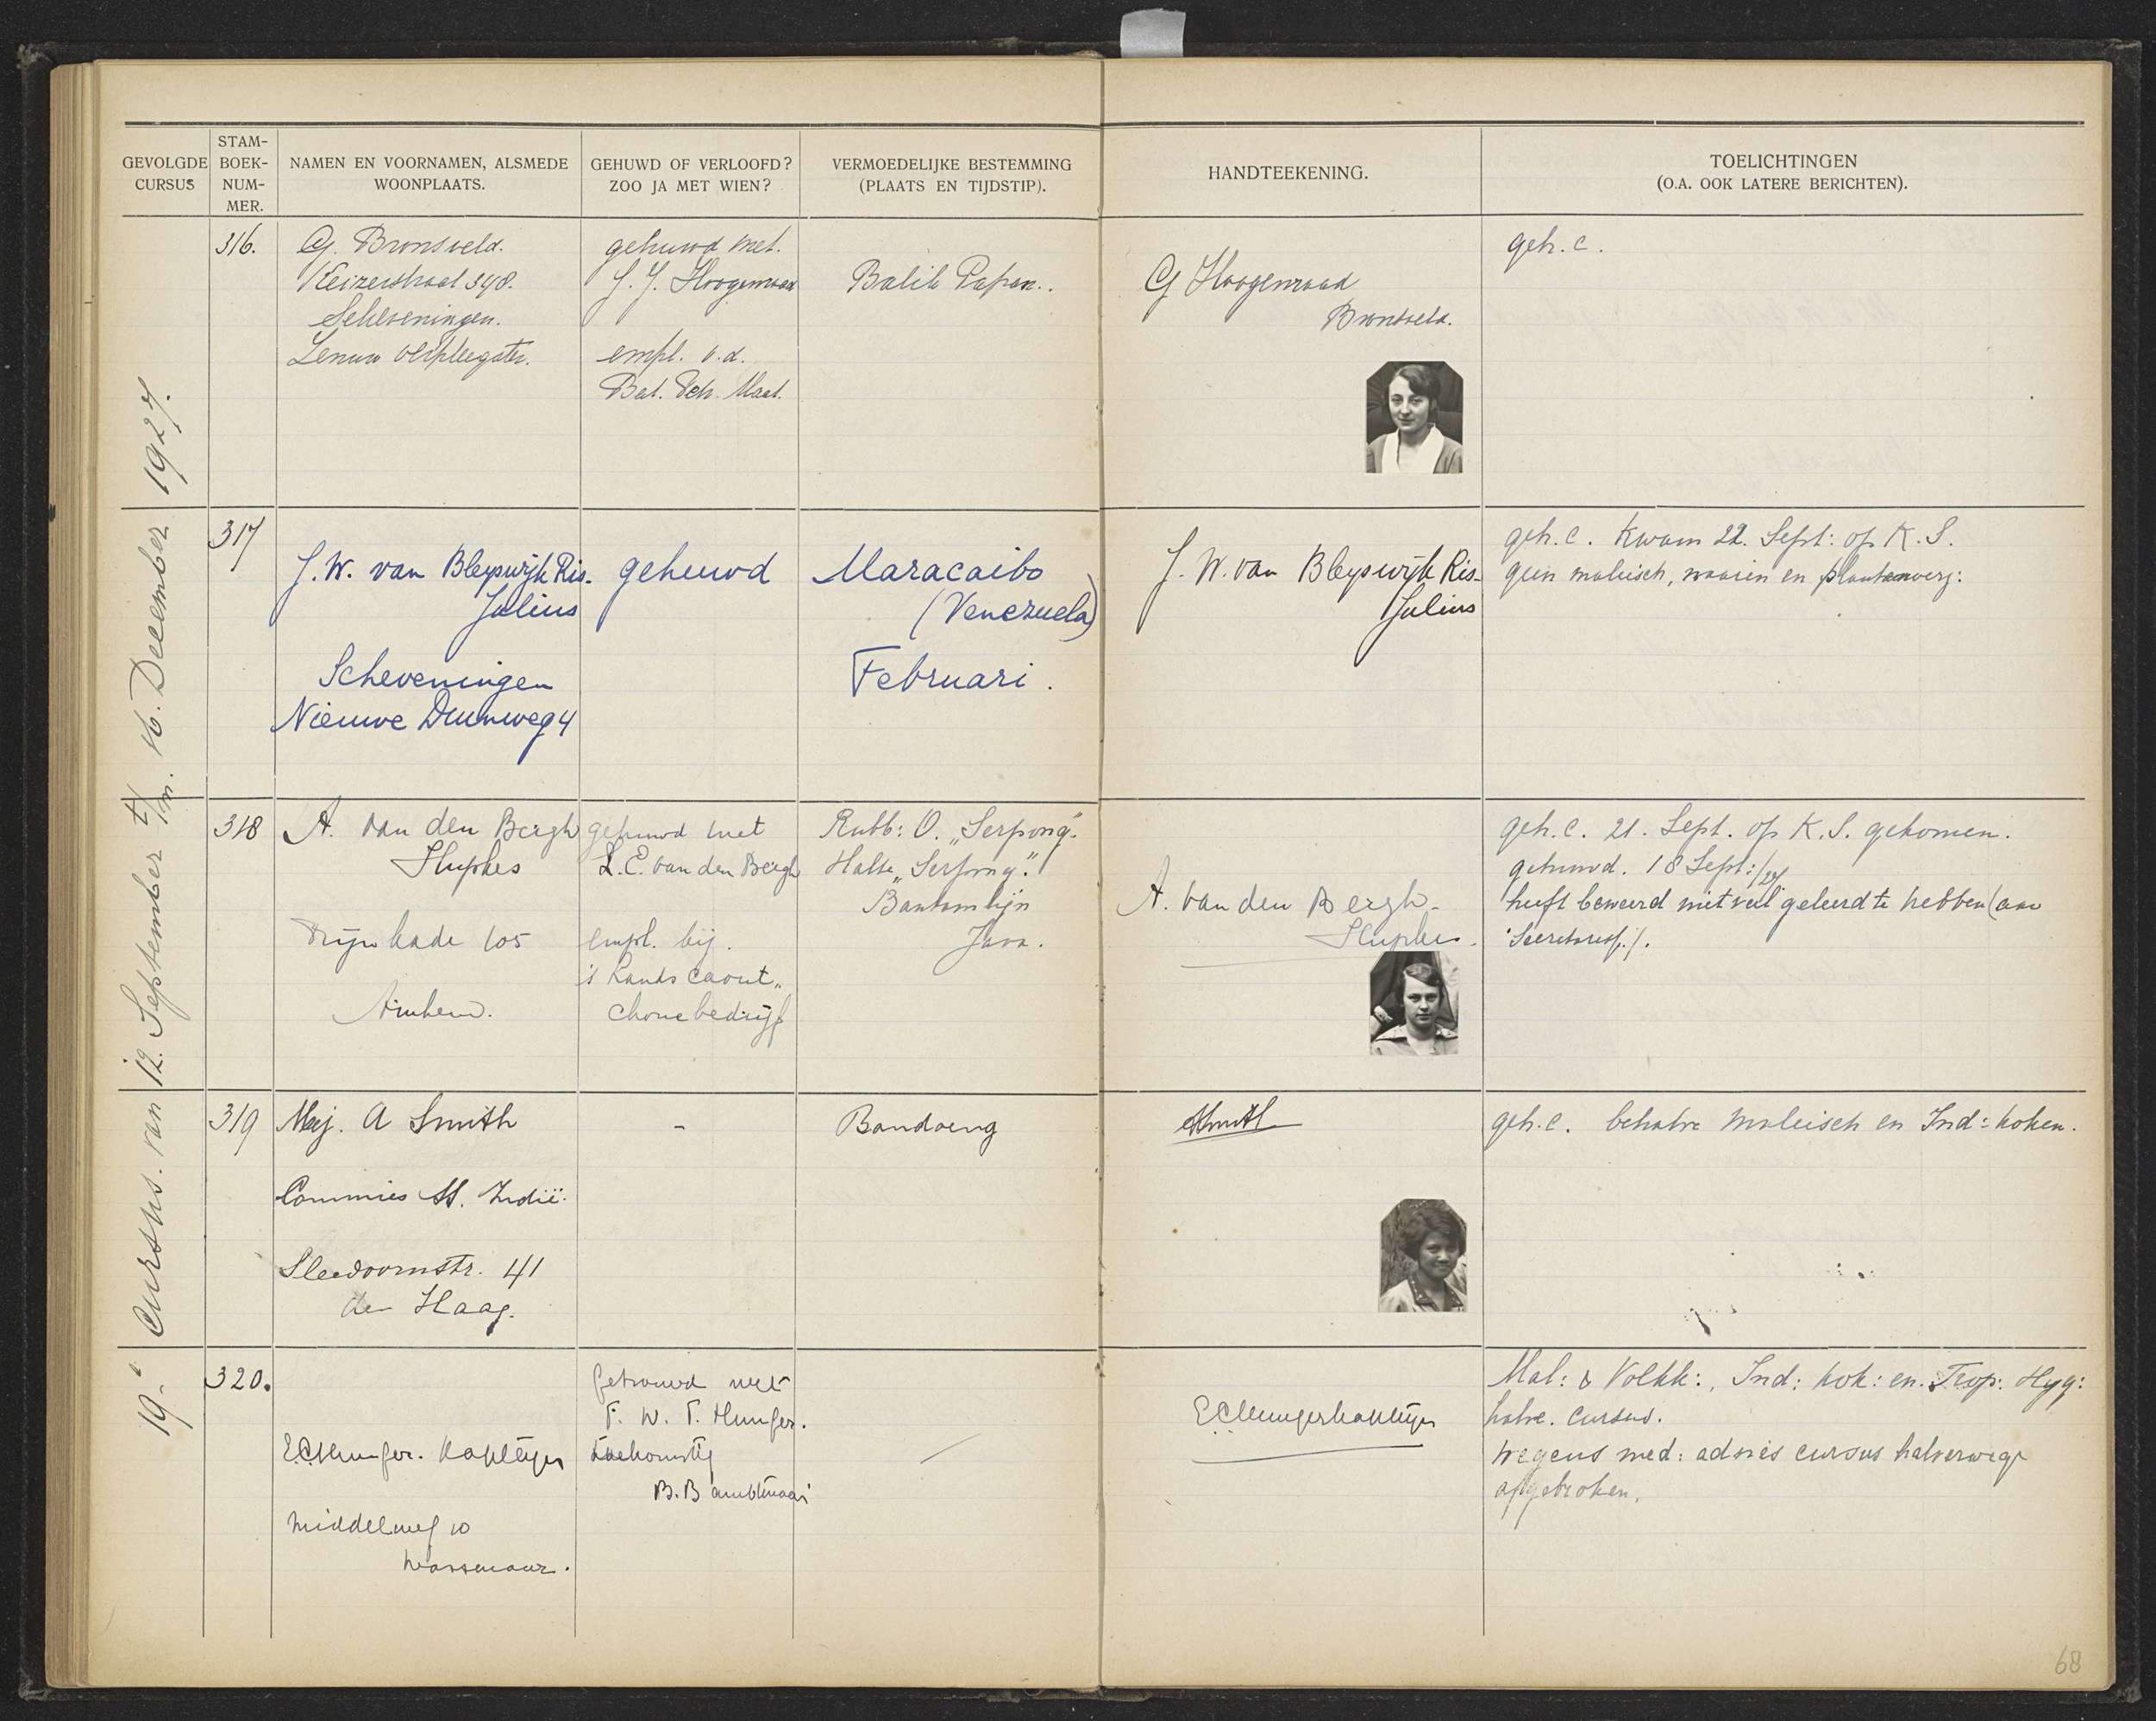 GEVOLGDE CURSUS
STAM-BOEK-NUM-MER.
NAMEN EN VOORNAMEN, ALSMEDE WOONPLAATS.
GEHUWD OF VERLOOFD? ZOO JA MET WIEN?
VERMOEDELIJKE BESTEMMING (PLAATS EN TIJDSTIP).
HANDTEEKENING.
TOELICHTINGEN (O.A. OOK LATERE BERICHTEN).
19e Cursus. van 12. September t/m. 16. December 1927.
316.
G. Bronsveld.
Keizerstraat 398.
Scheveningen.
Zenuw verpleegster.
gehuwd met.
J. J. Hoogenraad
empl. v.d.
Bat. Petr. Maat.
Balik Papan..
G Hoogenraad
Bronsveld.
geh. c.
317
J.W. van Bleyswijk Ris-
Julius
Scheveningen
Nieuwe Duinweg 4
gehuwd
Maracaibo
(Venezuela)
Februari.
J. W. van Bleyswijk Ris-
Julius
geh. c. Kwam 22. Sept: op K. S.
geen maleisch, naaien en plantenverz:
318
A. van den Bergh
Hupkes
Rijnkade 105
Arnhem.
gehuwd met
L. C. van den Bergh
empl. bij.
's Lands caout„
chouc bedrijf
Rubb: O. „Serpong".
Halte „Serpong".
Bantamlijn
Java.
A. van den Bergh-
Hupkes.
geh. c. 21. Sept. op K. S. gekomen.
gehuwd. 18 Sept:/27
heeft beweerd niet veel geleerd te hebben (aan
Secretaresse).
319
Mej. A Smith
Commies St. Indië.
Sleedoornstr. 41
den Haag.
-
Bandoeng
ASmith
geh. c. behalve Maleisch en Ind: koken.
320.
E.C. Hunger. Kapteijn
Middelweg 10
Wassenaar.
Getrouwd met
F. W. T. Hunger.
toekomstig
B.B ambtenaar
E.C. Hunger Kapteijn
Mal: & Volkk:, Ind: kok: en. Trop: Hyg:
halve. cursus.
wegens med: advies cursus halverwege
afgebroken.
68